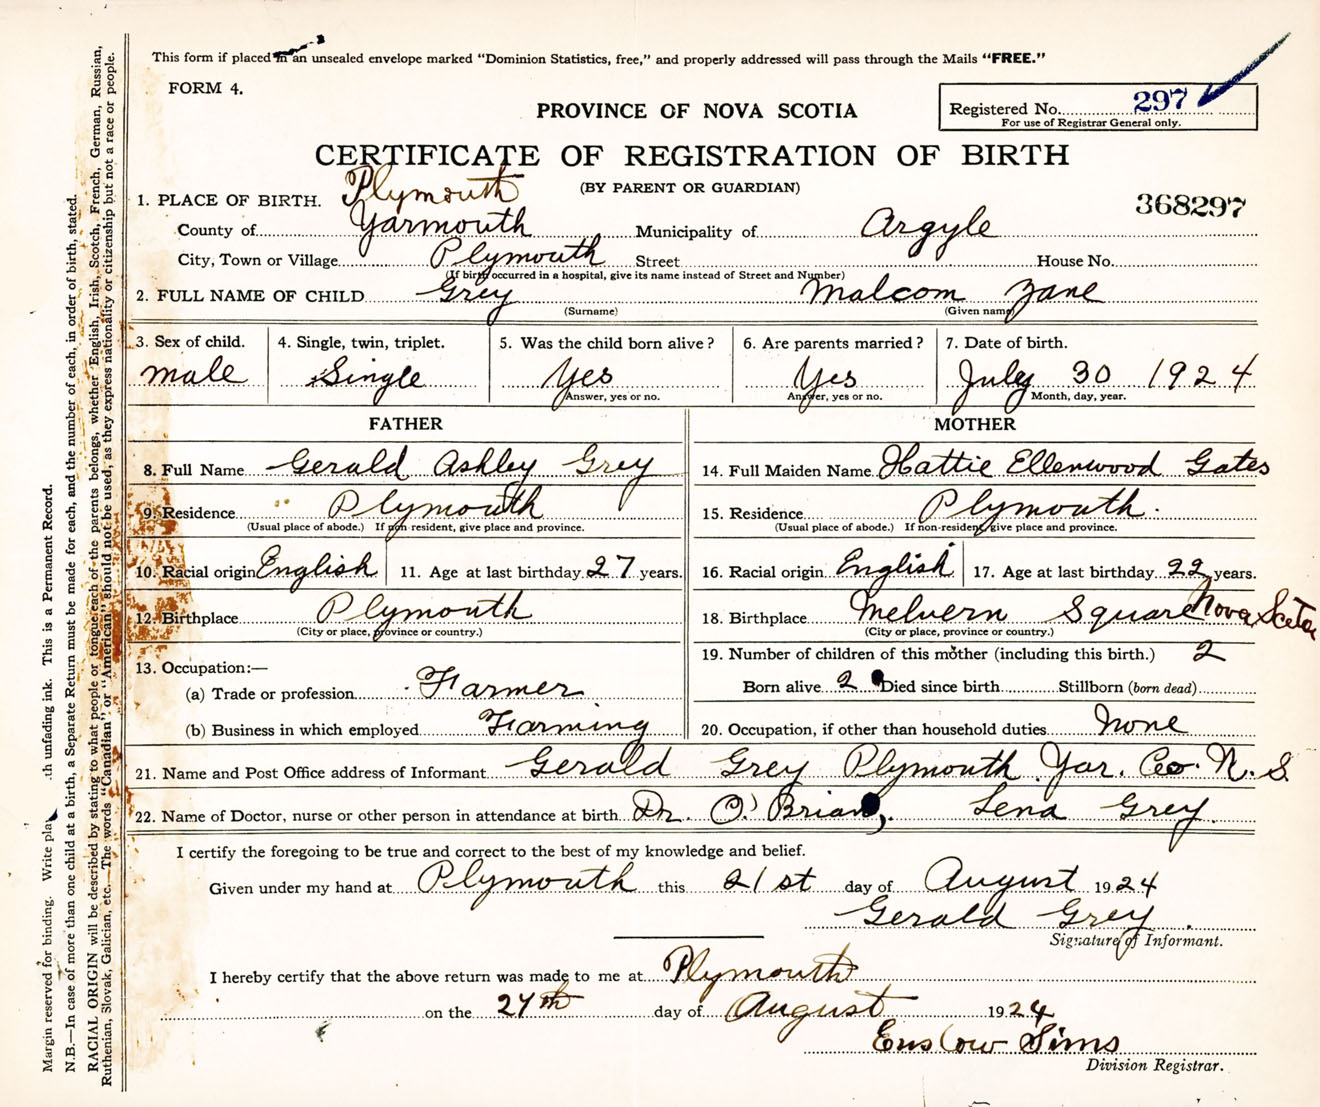 This form if placed in an unsealed envelope marked "Dominion Statistics, free," and properly addressed will pass through the Mails "FREE."
FORM 4.
PROVINCE OF NOVA SCOTIA
Registered No. 297
For use of Registrar General only.
CERTIFICATE OF REGISTRATION OF BIRTH
(BY PARENT OR GUARDIAN)
368297
1. PLACE OF BIRTH. Plymouth
County of Yarmouth Municipality of Argyle
City, Town or Village Plymouth Street House No.
(If birth occurred in a hospital, give its name instead of Street and Number)
2. FULL NAME OF CHILD Grey Malcom Zane
(Surname) (Given name)
3. Sex of child. 4. Single, twin, triplet. 5. Was the child born alive? 6. Are parents married? 7. Date of birth.
male Single Yes Yes July 30 1924
Answer, yes or no. Answer, yes or no. Month, day, year.
FATHER MOTHER
8. Full Name Gerald Ashley Grey 14. Full Maiden Name Hattie Ellenwood Gates
9. Residence Plymouth 15. Residence Plymouth.
(Usual place of abode.) If non-resident, give place and province. (Usual place of abode.) If non-resident, give place and province.
10. Racial origin English 11. Age at last birthday 27 years. 16. Racial origin English 17. Age at last birthday 22 years.
12. Birthplace Plymouth 18. Birthplace Melvern Square Nova Scotia
(City or place, province or country.) (City or place, province or country.)
13. Occupation:— 19. Number of children of this mother (including this birth.) 2
(a) Trade or profession Farmer Born alive 2 Died since birth Stillborn (born dead)
(b) Business in which employed Farming 20. Occupation, if other than household duties None
21. Name and Post Office address of Informant Gerald Grey Plymouth Yar. Co. N. S.
22. Name of Doctor, nurse or other person in attendance at birth Dr. O'Brian, Lena Grey.
I certify the foregoing to be true and correct to the best of my knowledge and belief.
Given under my hand at Plymouth this 21st day of August 1924
Gerald Grey.
Signature of Informant.
I hereby certify that the above return was made to me at Plymouth
on the 27th day of August 1924
Enslow Sims
Division Registrar.
Margin reserved for binding. Write unfading ink. This is a Permanent Record.
N.B.—In case of more than one child at a birth, a Separate Return must be made for each, and the number of each, in order of birth, stated.
RACIAL ORIGIN will be described by stating to what people or tongue each of the parents belongs, whether English, Irish, Scotch, French, German, Russian,
Ruthenian, Slovak, Galician, etc. The words "Canadian" or "American" should not be used, as they express nationality or citizenship but not a race or people.